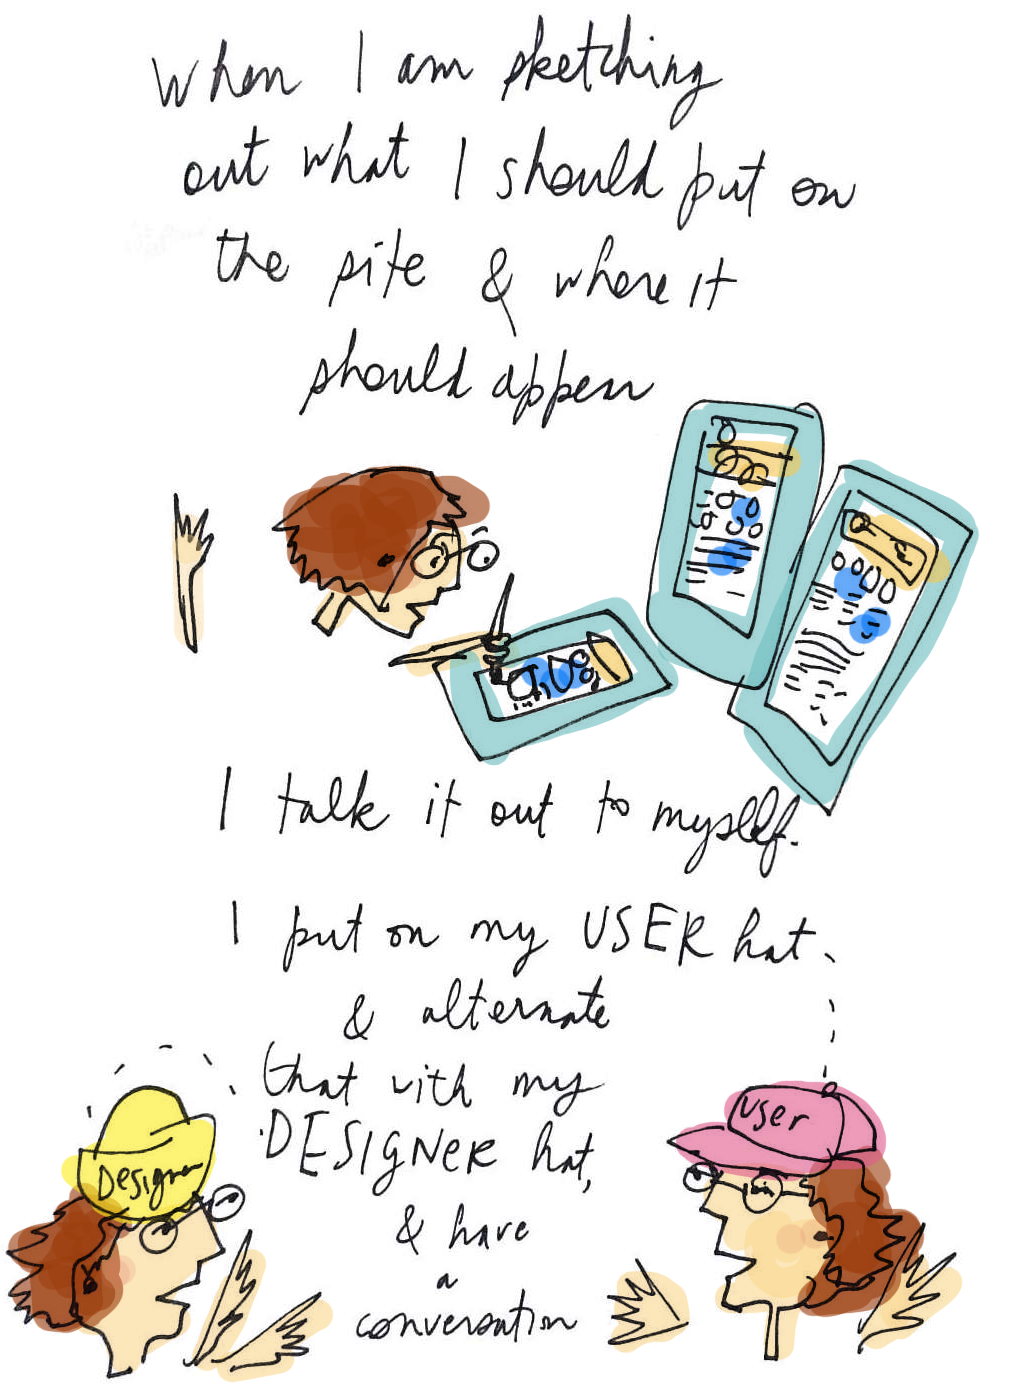 when I am sketching
out what I should put on
the site & where it
should appear
I talk it out to myself.
I put on my USER hat
& alternate
that with my
DESIGNER hat,
& have
a
conversation
Designer
user